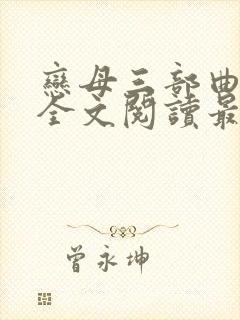 戀母三部曲
全文閱讀最
曾永坤